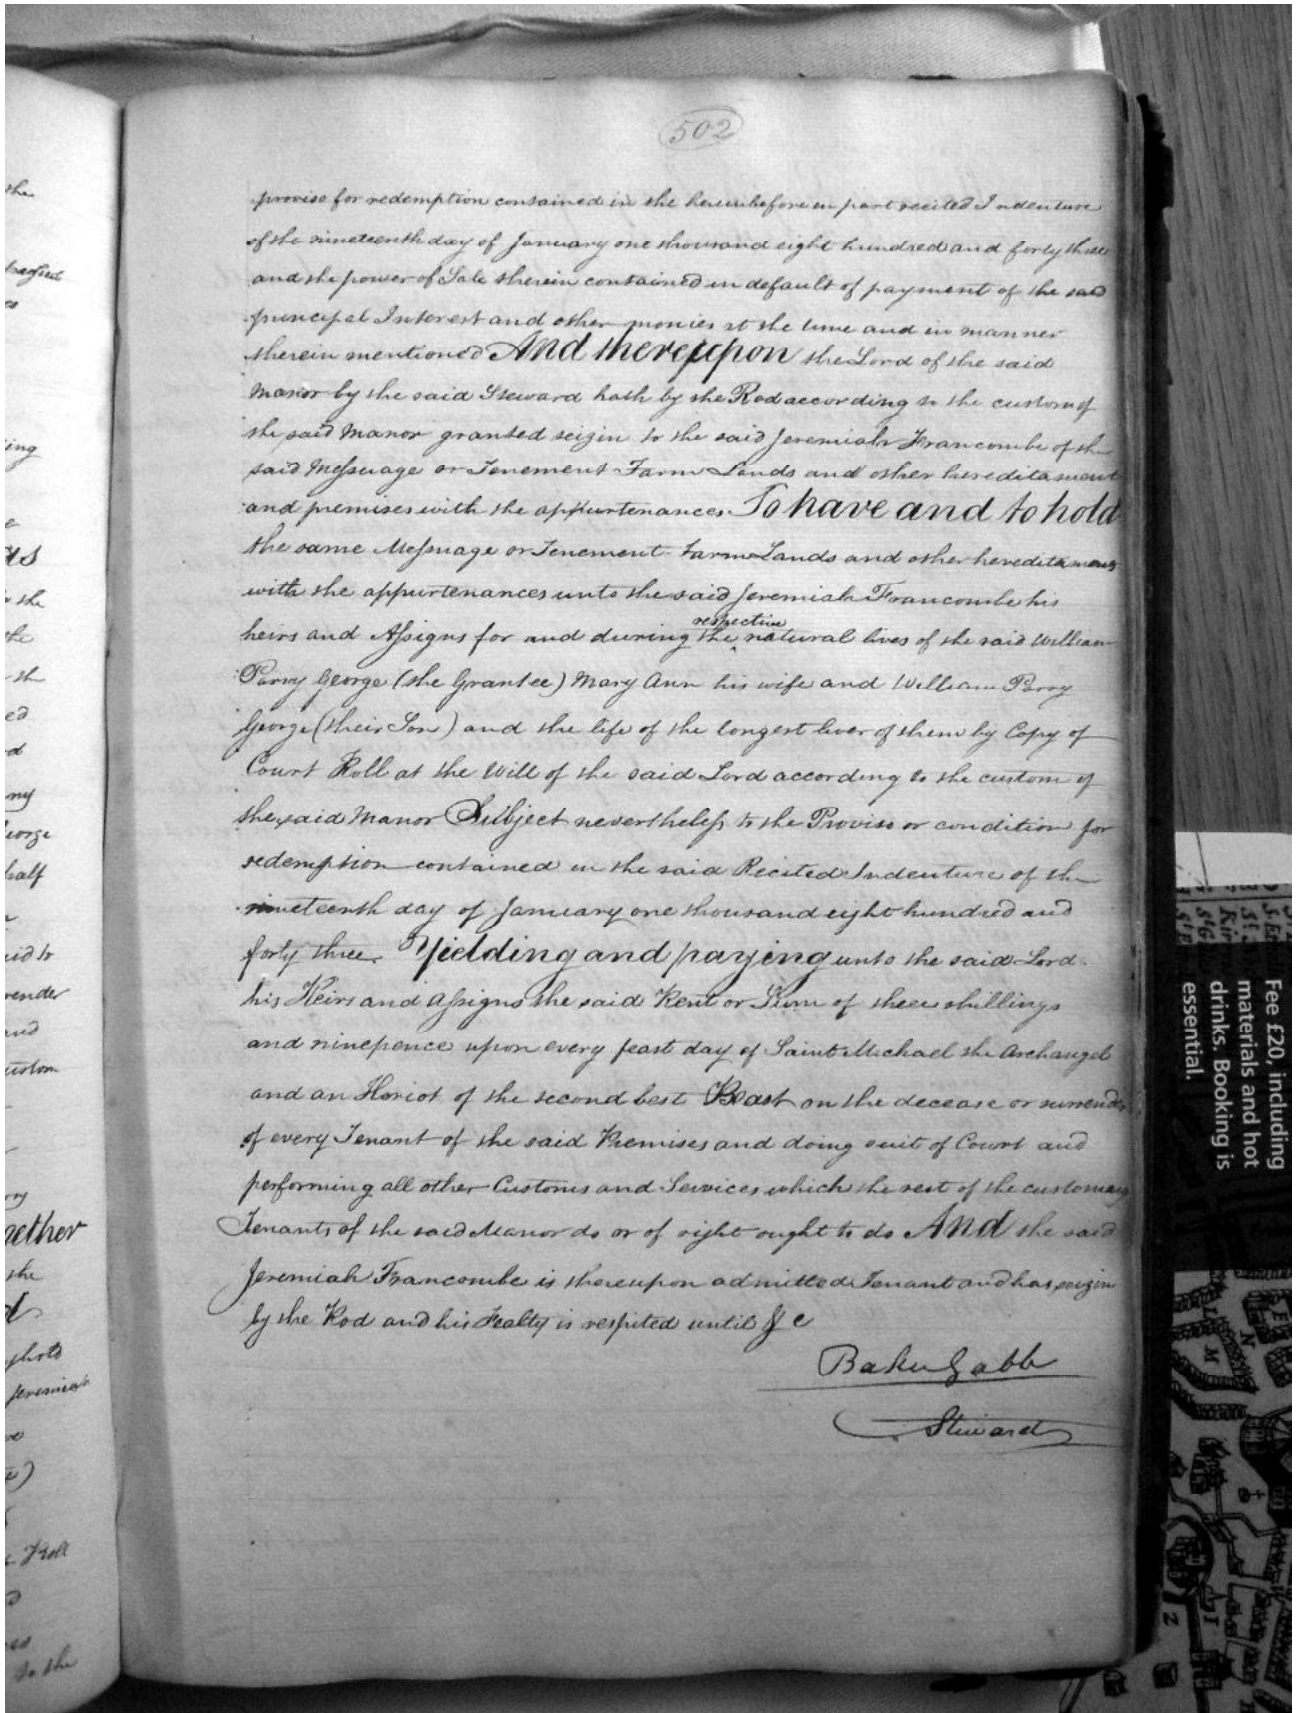 502
proviso for redemption contained in the hereinbefore in part recited Indenture
of the nineteenth day of January one thousand eight hundred and forty three
and the power of Sale therein contained in default of payment of the said
principal Interest and other monies at the time and in manner
therein mentioned And thereupon the Lord of the said
Manor by the said Steward hath by the Rod according to the custom of
the said Manor granted seizin to the said Jeremiah Francombe of the
said Messuage or Tenement Farm Lands and other hereditament
and premises with the appurtenances To have and to hold
the same Messuage or Tenement Farm Lands and other hereditaments
with the appurtenances unto the said Jeremiah Francombe his
respective
heirs and Assigns for and during the ‸ natural lives of the said William
Parry George (the Grantee) Mary Ann his wife and William Parry
George (their Son) and the life of the longest liver of them by Copy of
Court Roll at the Will of the said Lord according to the custom of
the said Manor Subject nevertheless to the Proviso or condition for
redemption contained in the said Recited Indenture of the
nineteenth day of January one thousand eight hundred and
forty three Yielding and paying unto the said Lord
his Heirs and Assigns the said Rent or Sum of three shillings
and ninepence upon every feast day of Saint Michael the Archangel
and an Heriot of the second best Beast on the decease or surrender
of every Tenant of the said Premises and doing suit of Court and
performing all other Customs and Services which the rest of the customary
Tenants of the said Manor do or of right ought to do And the said
Jeremiah Francombe is thereupon admitted Tenant and has seizin
by the Rod and his Fealty is respited until &c
Baker Gabb
Steward
the
ing
the
the
the
ed
ny
George
half
render
and
custom
gether
the
Jeremiah
Roll
to the
Fee £20, including
materials and hot
drinks. Booking is
essential.